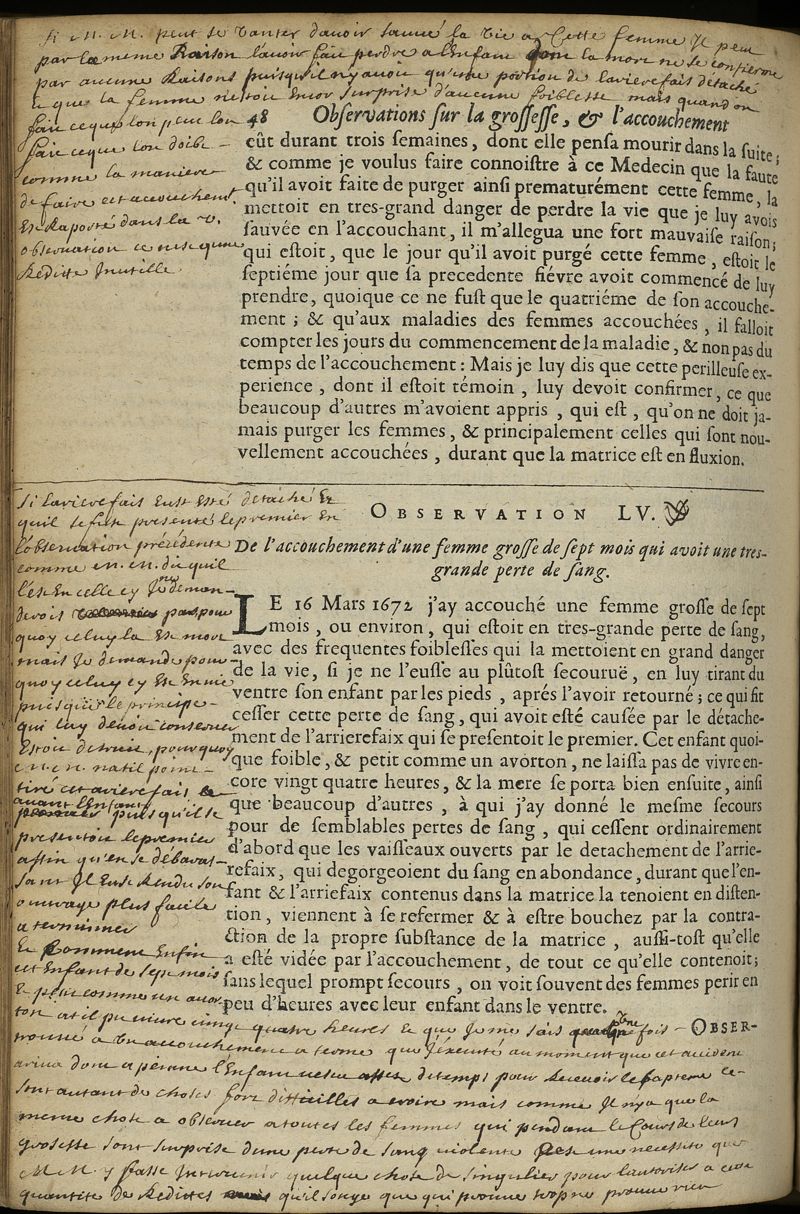 si M. M. peut se vanter d'avoir sauvé la vie a cette femme Il peut
par la meme Raison l'avoir fait perdre a l'enfant dont la mort ne se
par aucune Raisons puisqu'il n'y avoit qu'une portion de l'arierefais détaché
que la femme n'estoit encor surprise d'aucune foiblesse mais quand on
fait ce que l'on peut l'on
fait ce que l'on doibt
comme la maniere
de faire cet accouchemt
est Raporté dans la
observation ce n'est qu'une
Redicte Inutille.
48 Obſervations ſur la groſſeſſe, & l'accouchement
eût durant trois ſemaines, dont elle penſa mourir dans la ſuite;
& comme je voulus faire connoiſtre à ce Medecin que la faute
qu'il avoit faite de purger ainſi prematurément cette femme, la
mettoit en tres-grand danger de perdre la vie que je luy avois
ſauvée en l'accouchant, il m'allegua une fort mauvaiſe raiſon;
qui eſtoit, que le jour qu'il avoit purgé cette femme, eſtoit le
ſeptiéme jour que ſa precedente fiévre avoit commencé de luy
prendre, quoique ce ne fuſt que le quatriéme de ſon accouche-
ment; & qu'aux maladies des femmes accouchées, il falloit
compter les jours du commencement de la maladie, & non pas du
temps de l'accouchement: Mais je luy dis que cette perilleuſe ex-
perience, dont il eſtoit témoin, luy devoit confirmer, ce que
beaucoup d'autres m'avoient appris, qui eſt, qu'on ne doit ja-
mais purger les femmes, & principalement celles qui ſont nou-
vellement accouchées, durant que la matrice eſt en fluxion.
OBSERVATION LV.
De l'accouchement d'une femme groſſe de ſept mois qui avoit une tres-
grande perte de ſang.
LE 16 Mars 1672 j'ay accouché une femme groſſe de ſept
mois, ou environ, qui eſtoit en tres-grande perte de ſang,
avec des frequentes foibleſſes qui la mettoient en grand danger
de la vie, ſi je ne l'euſſe au plûtoſt ſecouruë, en luy tirant du
ventre ſon enfant par les pieds, aprés l'avoir retourné; ce qui fit
ceſſer cette perte de ſang, qui avoit eſté cauſée par le détache-
ment de l'arrierefaix qui ſe preſentoit le premier. Cet enfant quoi-
que foible, & petit comme un avorton, ne laiſſa pas de vivre en-
core vingt quatre heures, & la mere ſe porta bien enſuite, ainſi
que beaucoup d'autres, à qui j'ay donné le meſme ſecours
pour de ſemblables pertes de ſang, qui ceſſent ordinairement
d'abord que les vaiſſeaux ouverts par le detachement de l'arrie-
refaix, qui degorgeoient du ſang en abondance, durant que l'en-
fant & l'arriefaix contenus dans la matrice la tenoient en diſten-
tion, viennent à ſe refermer & à eſtre bouchez par la contra-
ction de la propre ſubſtance de la matrice, auſſi-toſt qu'elle
a eſté vidée par l'accouchement, de tout ce qu'elle contenoit;
ſans lequel prompt ſecours, on voit ſouvent des femmes perir en
peu d'heures avec leur enfant dans le ventre.
OBSER-
si l'arierefais eust esté détaché et
qu'il se fust presenté le premier en
l'observation précédente
comme M. M. dit qu'il
l'est en celle cy Je ne deman-
derois pas pour
quoy celuy la est mort
mais Je demande pour-
quoy celuy cy est en vie
puisque le principe
qui luy devoit conserver
estoit détruit, pourquoy
M. M. n'a til point
tiré cet arierefais
avant l'enfant
puis qu'il se
presentoit le premier
affin qu'en se débaras-
sant Il eust Rendu son
ouvrage plus facille
a terminner
Et Comment Enfin
cet Enfant de sept mois
Et petit comme un avor
ton a til pu vivre vingt quatre heures Et que Je me sois une fois
trouvé a un accouchement a terme que J'éxécuté au moment que cet accident
ariva dont a péinne l'Enfant eut assez de temps pour Recevoir le baptéme ce
sont autant de choses fort difficilles a croire mais comme Il n'y a que la
meme chose a observer a toutes les femmes qui pendant le Cours de leurs
grosesse sont surprise d'une perte de sang violente c'est une necessité que
M. M. y fasse Intervenir quelque chose de singulier pour l'autoriser a cette
quantité de Redictes qu'il songe que qui prouve trop ne prouve rien